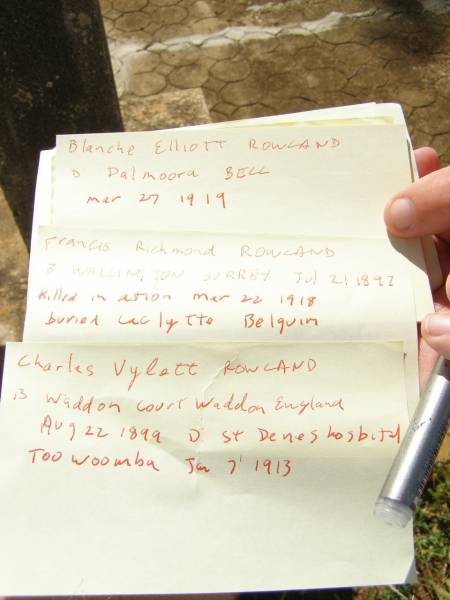 Blanche Elliott ROWLAND
D Dalmoora BELL
mar 27 1919
Francis Richmond ROWLAND
B WALLINGTON SURREY Jul 21 1892
Killed in ation mar 22 1918
buried Laclytte Belguim
Charles Vylett ROWLAND
B Waddon Court Waddon England
Aug 22 1899 D St Denes hosbitd
TOOWOOMBA Jan 7 1913